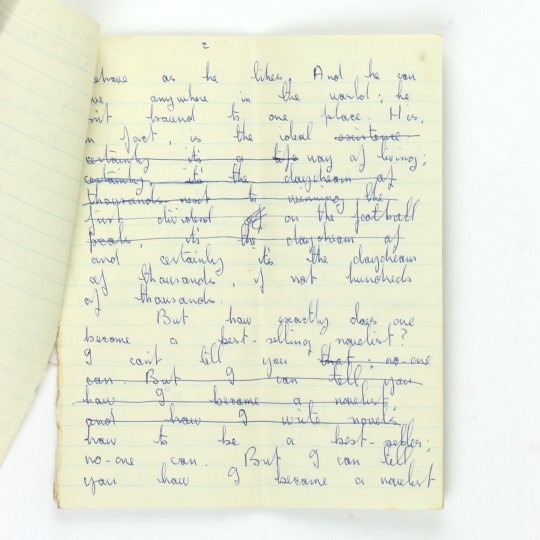 2
ehave as he likes. And he can
ve anywhere in the world; he
sn't bound to one place. His,
n fact, is the ideal existence
certainly it's a life way of living;
certainly, it's the daydream of
thousands next to winning the
first dividend on the football
pools, it's the daydream of
and certainly it's the daydream
of thousands, if not hundreds
of thousands.
But how exactly does one
become a best-selling novelist?
I can't tell you that; no-one
can. But I can tell you
how I became a novelist,
and how I write novels.
how to be a best-seller;
no-one can. But I can tell
you how I became a novelist